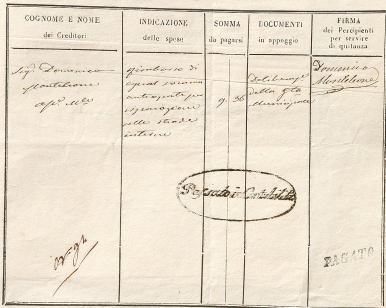 COGNOME E NOME
dei Creditori
INDICAZIONE
delle spese
SOMMA
da pagarsi
DOCUMENTI
in appoggio
FIRMA
dei Percipienti
per servire
di quitanza
Sig. Domenico
Monteleone
rimborso di
egual somma
anticipata per
nelle strade
interne
9 36
della Gta
Municipale
Domenico
Monteleone
Passato in Contabilità
PAGATO